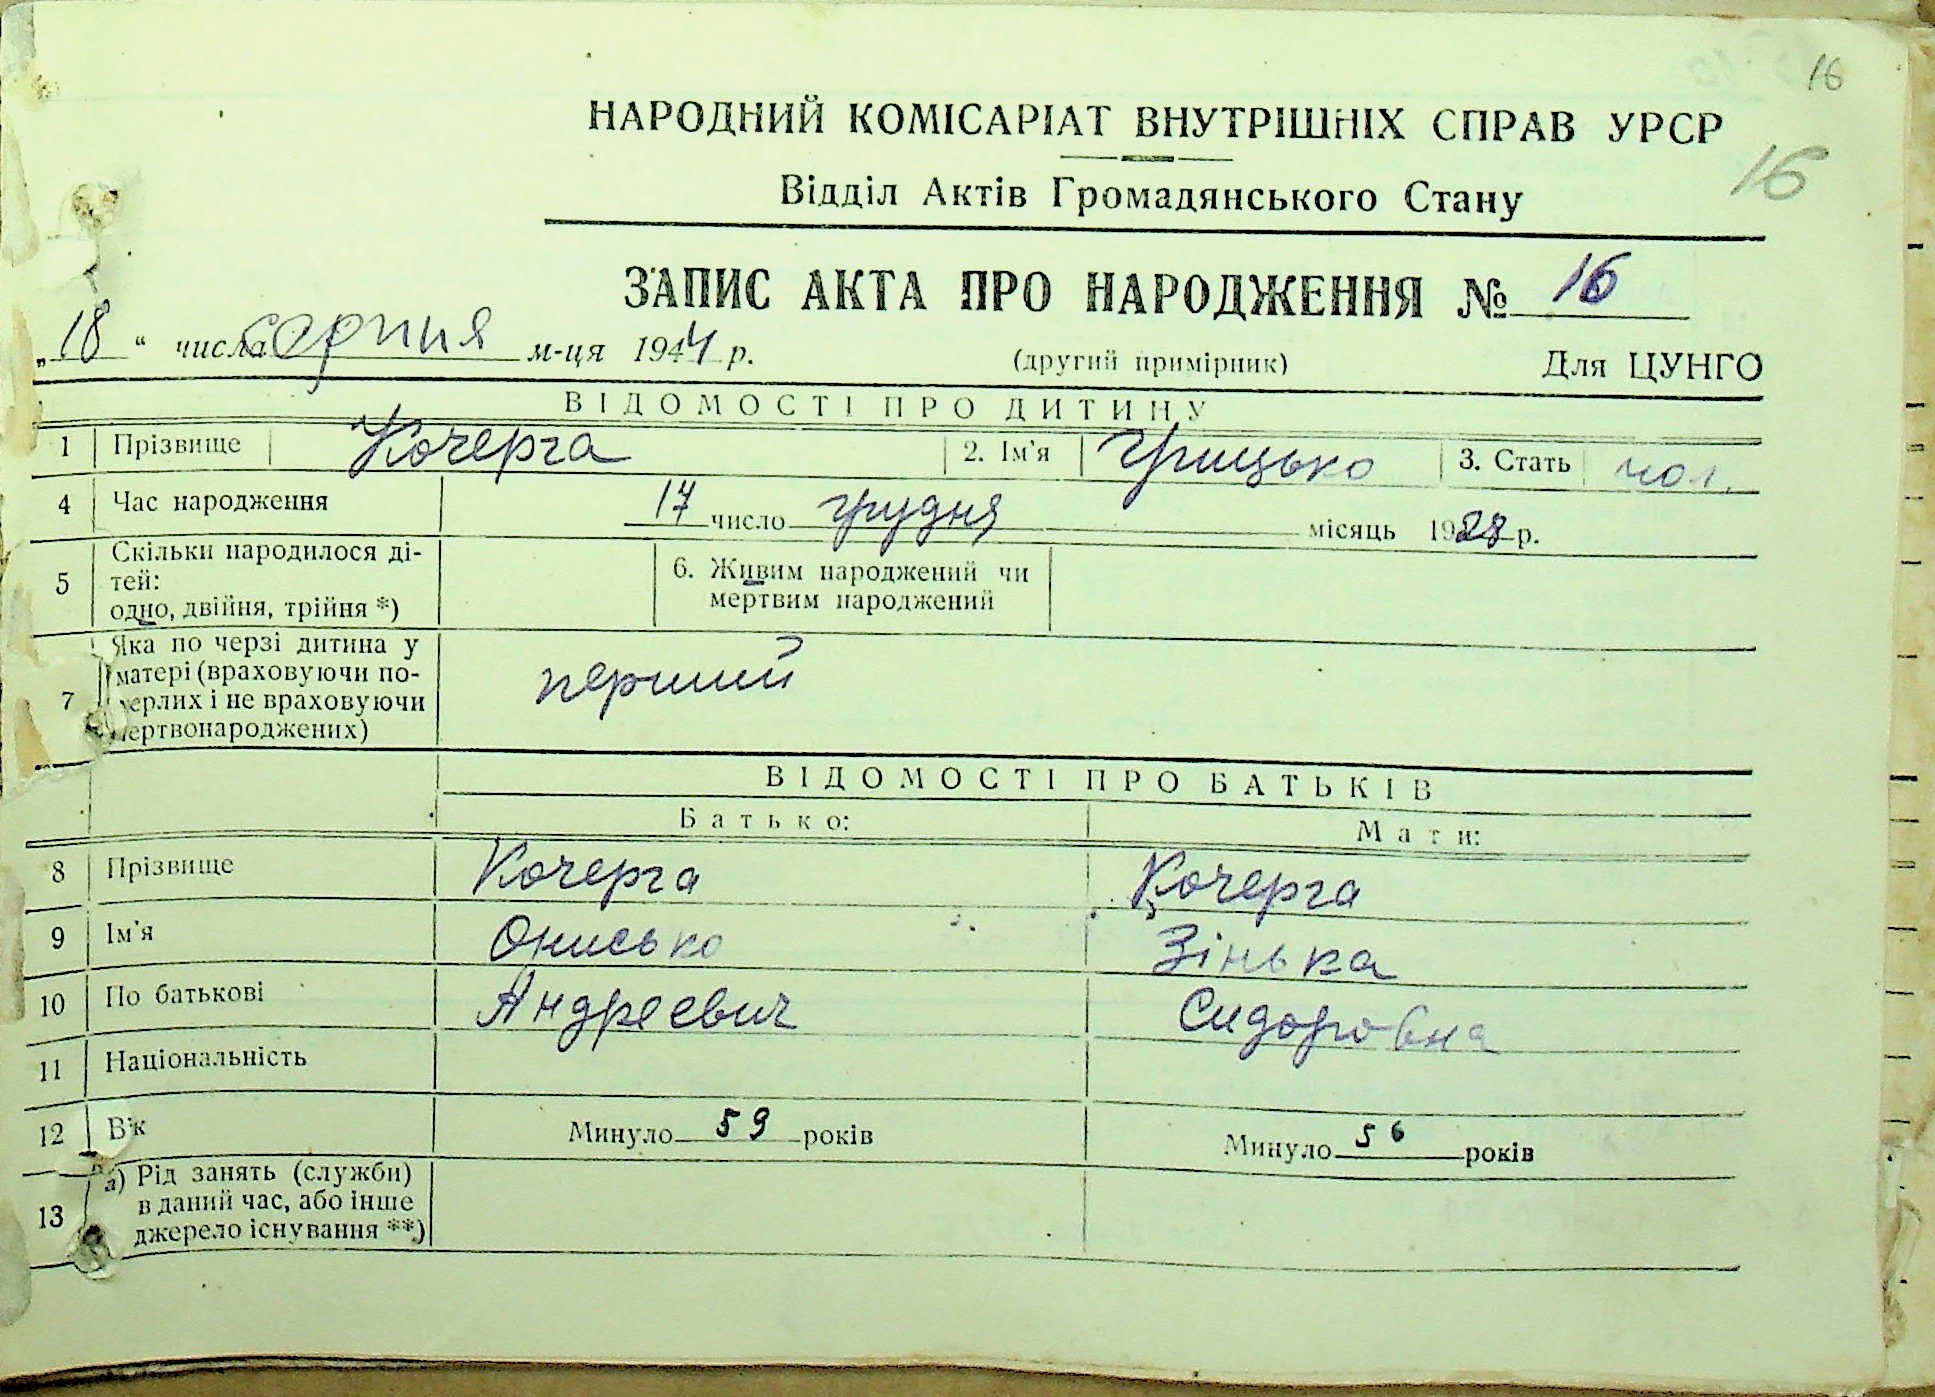 16
НАРОДНИЙ КОМІСАРІАТ ВНУТРІШНІХ СПРАВ УРСР
16
Відділ Актів Громадянського Стану
ЗАПИС АКТА ПРО НАРОДЖЕННЯ № 16
„18“ числа серпня м-ця 1944 р. (другий примірник) Для ЦУНГО
ВІДОМОСТІ ПРО ДИТИНУ
1 Прізвище Кочерга 2. Ім'я Грицько 3. Стать чол.
4 Час народження 17 число грудня місяць 1928 р.
5 Скільки народилося ді-
тей:
одно, двійня, трійня *)
6. Живим народжений чи
мертвим народжений
7 Яка по черзі дитина у
матері (враховуючи по-
мерлих і не враховуючи
мертвонароджених)
перший
ВІДОМОСТІ ПРО БАТЬКІВ
Батько: Мати:
8 Прізвище Кочерга Кочерга
9 Ім'я Онисько Зінька
10 По батькові Андреевич Сидоровна
11 Національність
12 Вік Минуло 59 років Минуло 56 років
13 а) Рід занять (служби)
в даний час, або інше
джерело існування **)